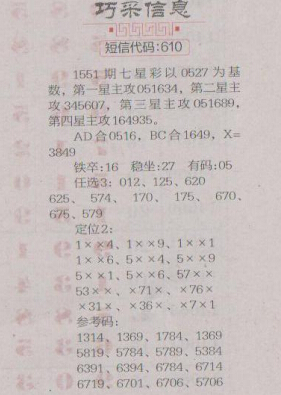 巧采信息
短信代码:610
1551期七星彩以0527为基
数，第一星主攻051634，第二星主
攻345607，第三星主攻051689，
第四星主攻164935。
AD合0516，BC合1649，X=
3849
铁卒:16 稳坐:27 有码:05
任选3：012、125、620
625、574、170、175、670、
675、579
定位2：
1××4、1××9、1××1
1××6、5××4、5××9
5××1、5××6、57××
53××、×71×、×76×
×31×、×36×、×7×1
参考码：
1314、1369、1784、1369
5819、5784、5789、5384
6391、6394、6784、6714
6719、6701、6706、5706